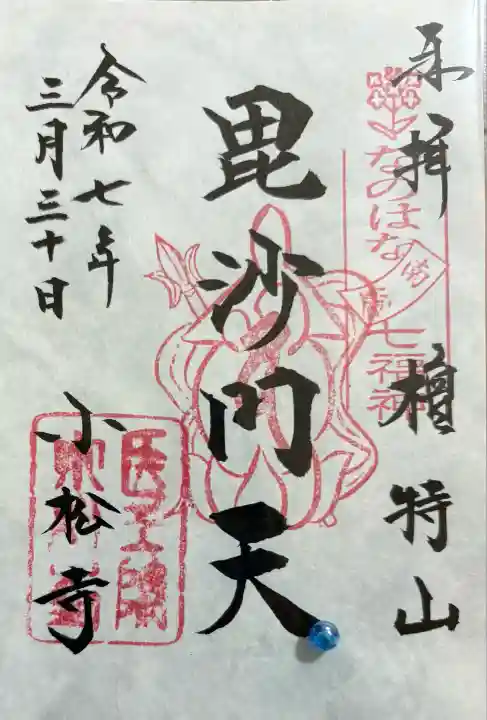 奉拝 檀特山
なのはな
七福神
毘沙門天
令和七年
三月三十日
小松寺
医王院